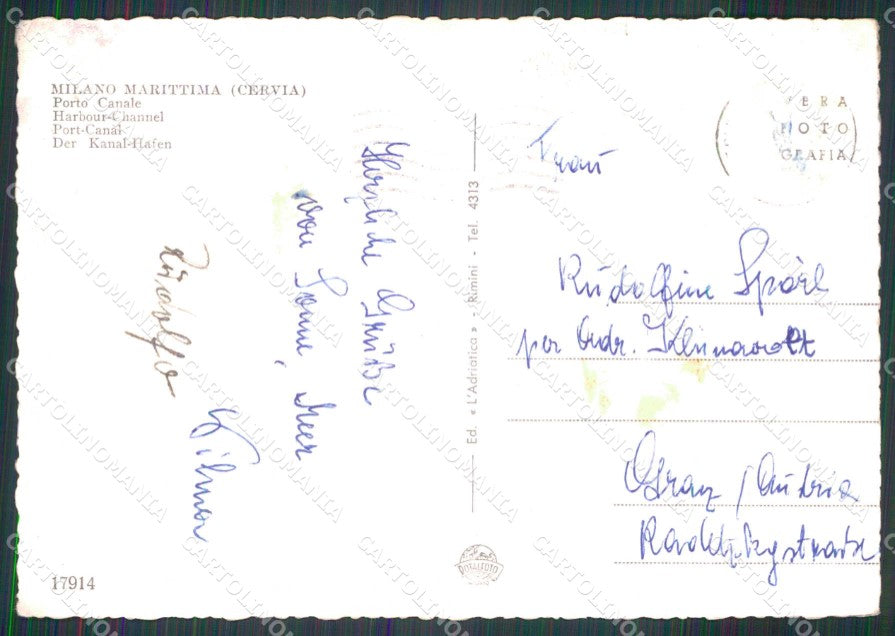 MILANO MARITTIMA (CERVIA)
Porto Canale
Harbour-Channel
Port-Canal
Der Kanal-Hafen
Herzliche Grüße
von Sonne, Meer
Rudolfo
Wilma
17914
Ed. « L'Adriatica » - Rimini - Tel. 4313
VERA
FOTO
GRAFIA
Frau
Rudolfine Spörl
per Adr.
Graz / Austria
Radetzkystraße
TOTALFOTO
CARTOLINOMANIA